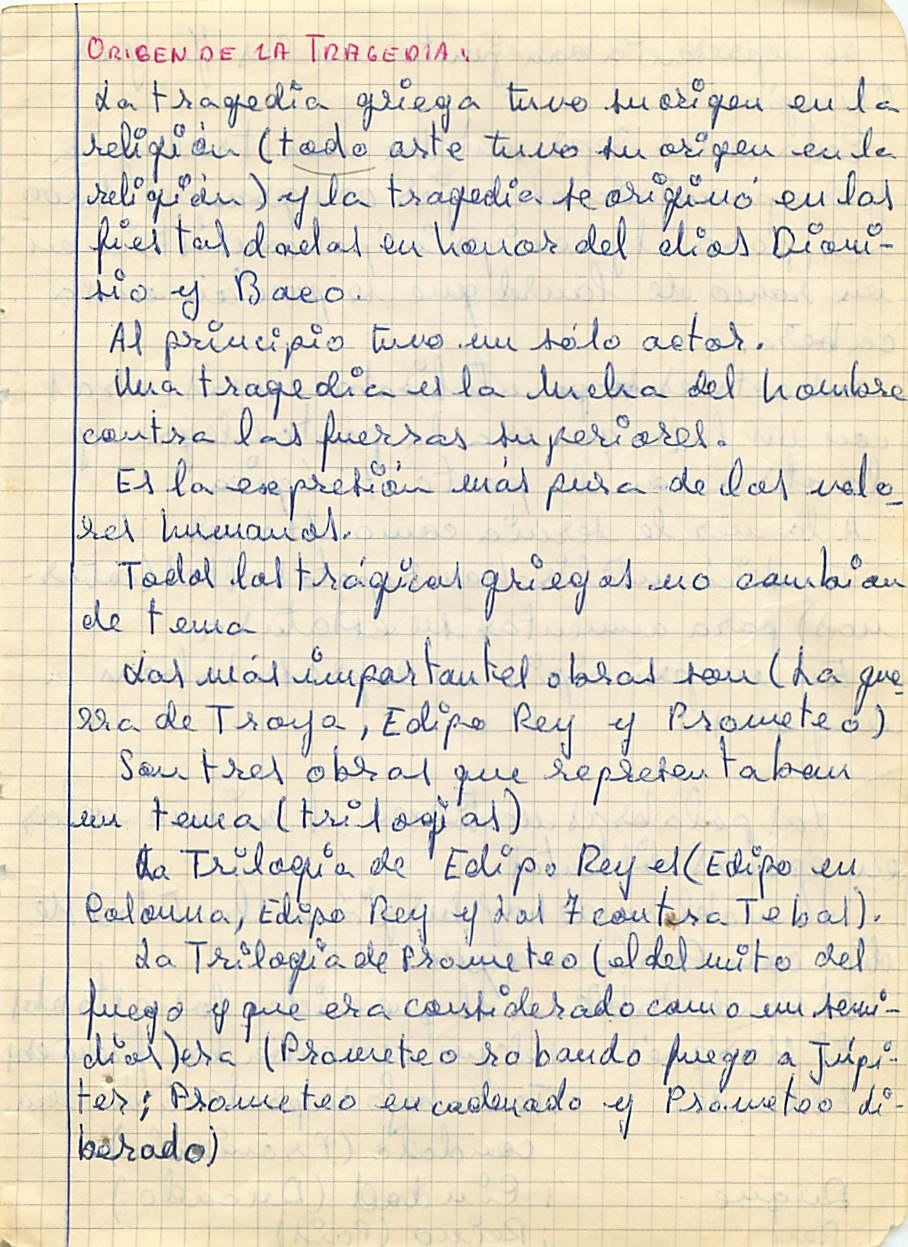 ORIGEN DE LA TRAGEDIA:
La tragedia griega tuvo su origen en la
religión (todo arte tuvo su origen en la
religión) y la tragedia se originó en las
fiestas dadas en honor del dios Dioni-
sio y Baco.
Al principio tuvo un sólo actor.
Una tragedia es la lucha del hombre
contra las fuerzas superiores.
Es la expresión más pura de los valo-
res humanos.
Todos los trágicos griegos no cambian
de tema
Las más importantes obras son (La gue-
rra de Troya, Edipo Rey y Prometeo)
Son tres obras que representaban
un tema (trilogías)
La Trilogía de Edipo Rey es (Edipo en
Colonna, Edipo Rey y Los 7 contra Tebas).
La Trilogía de Prometeo (el del mito del
fuego y que era considerado como un semi-
dios) era (Prometeo robando fuego a Júpi-
ter; Prometeo encadenado y Prometeo li-
berado)